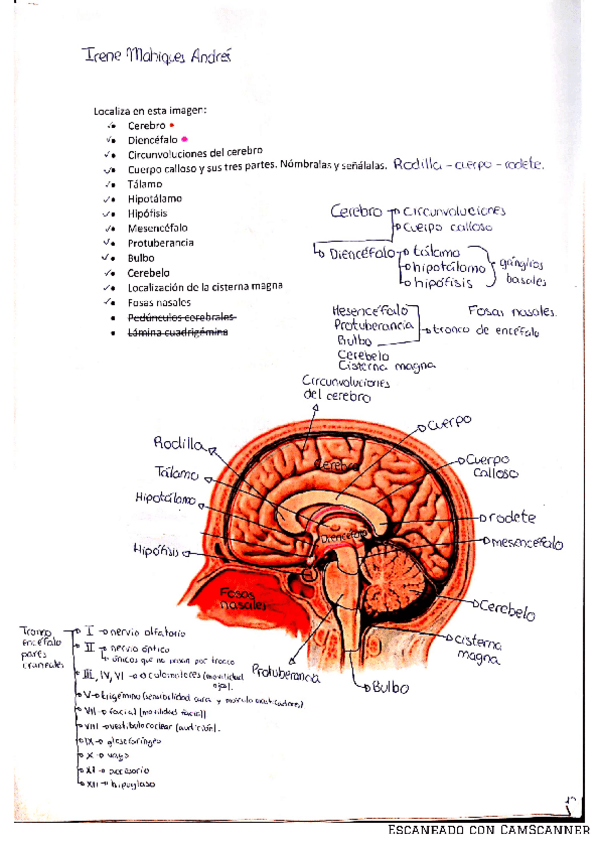 Irene Mahiques Andrés
Localiza en esta imagen:
Cerebro
Diencéfalo
Circunvoluciones del cerebro
Cuerpo calloso y sus tres partes. Nómbralas y señálalas. Rodilla - cuerpo - rodete.
Tálamo
Hipotálamo
Hipófisis
Mesencéfalo
Protuberancia
Bulbo
Cerebelo
Localización de la cisterna magna
Fosas nasales
Pedúnculos cerebrales
Lámina cuadrigémina
Cerebro → circunvoluciones
→ cuerpo calloso
Diencéfalo → tálamo
→ hipotálamo
→ hipófisis
basales
Mesencéfalo
Protuberancia
Bulbo
→ tronco de encéfalo
Fosas nasales.
Cerebelo
Cisterna magna
Circunvoluciones
del cerebro
Cuerpo
Rodilla
Cerebro
Cuerpo
calloso
Tálamo
Hipotálamo
rodete
Diencéfalo
mesencéfalo
Hipófisis
Fosas
nasales
Cerebelo
cisterna
magna
Protuberancia
Bulbo
encéfalo
pares
craneales
I → nervio olfatorio
II → nervio óptico
únicos que no por tronco
III, IV, VI → oculomotores (movilidad
ojos).
V → trigémino (sensibilidad cara y músculo masticadores)
VII → facial (movilidad facial)
VIII → vestibulococlear (audición).
IX → glosofaríngeo
X → vago
XI → accesorio
XII → hipogloso
ESCANEADO CON CAMSCANNER